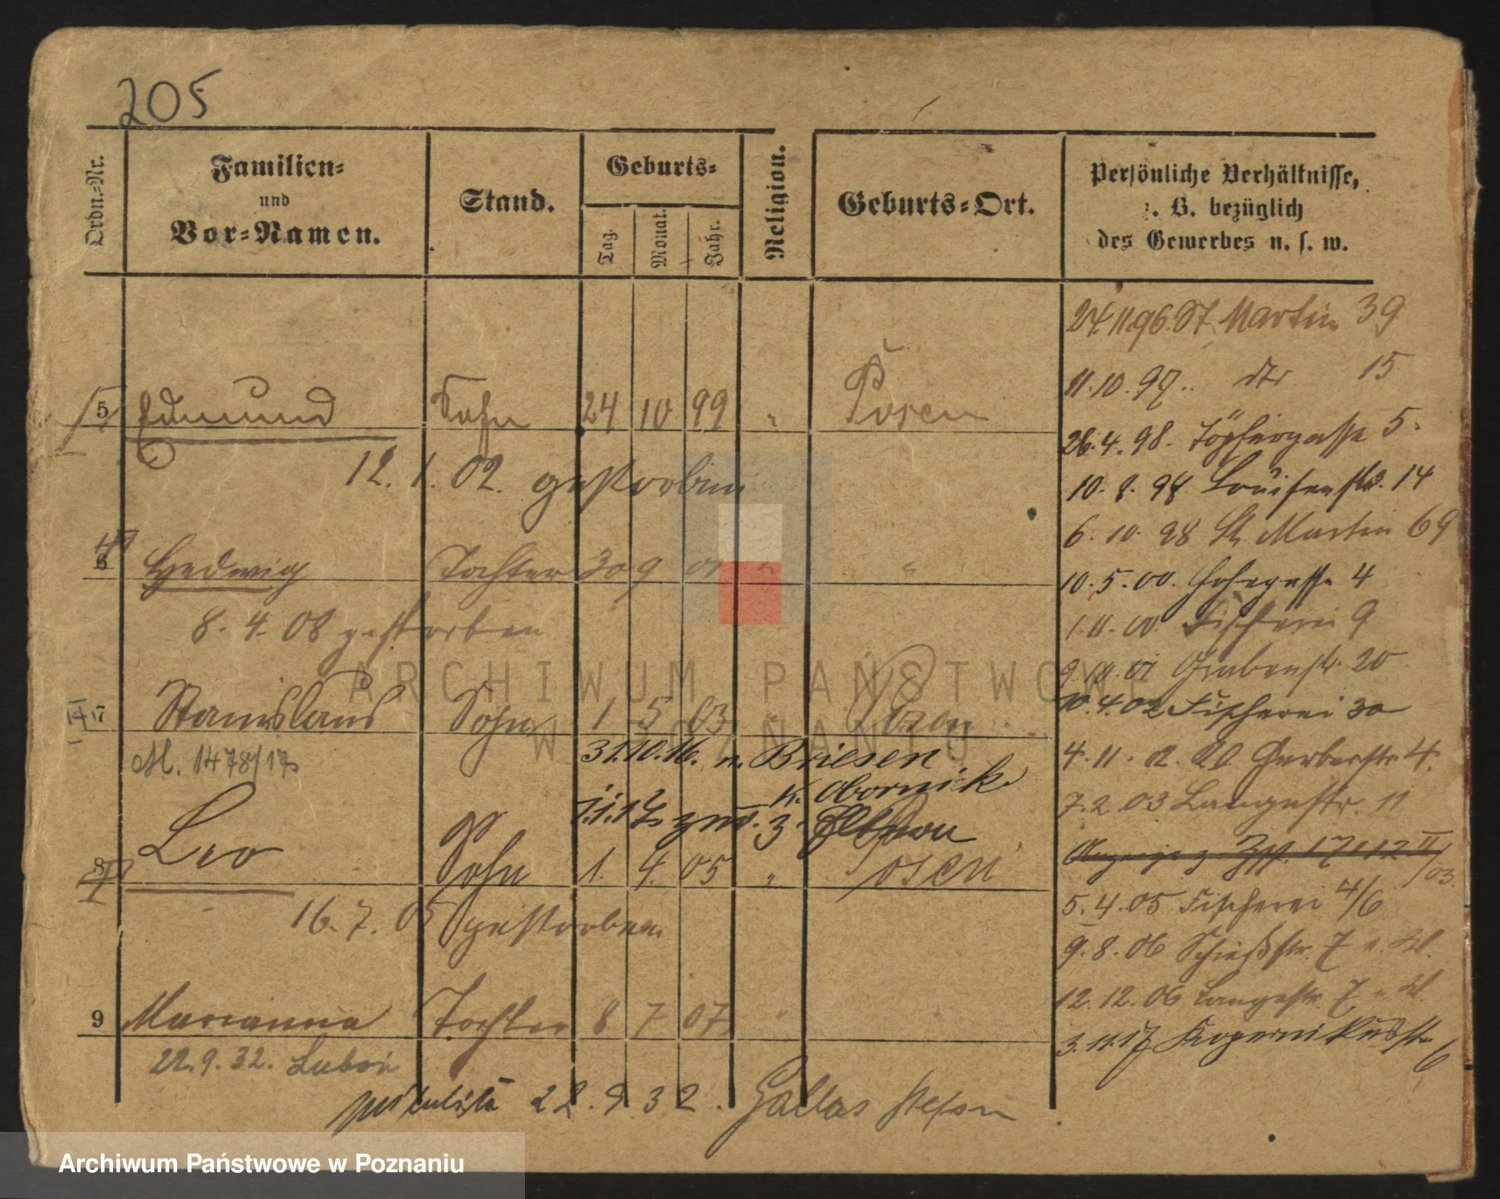 205
Ordn.-Nr.
Familien-
und
Vor-Namen.
Stand.
Geburts-
Tag.
Monat.
Jahr.
Religion.
Geburts-Ort.
Persönliche Verhältnisse,
z. B. bezüglich
des Gewerbes u. s. w.
24.11.96. St. Martin 39
11.10.97. dto 15
5 Edmund Sohn 24 10 99 " Posen
26.4.98. Töpfergasse 5.
12. 1. 02. gestorben
10.8.98 Louisenstr. 14
6.10.98 St. Martin 69
6 Hedwig Tochter 30 9 01 " "
10.5.00. 4
8. 4. 08 gestorben
1.11.00. Fischerei 9
Grabenstr. 20
7 Stanislaus Sohn 1 5 03 " Posen
4.02 Fischerei 30
M. 1478/17
31.10.16. n. Briesen
K. Obornik
4.11. Gerberstr. 4.
7.1.17 zur. z.
7.2.03 Langestr. 11
8 Leo Sohn 1. 4. 05 " Posen
16. 7. 05 gestorben
5.4.05 Fischerei 4/6
9.8.06 Schießstr. 7
9 Marianna Tochter 8 7 07 "
12.12.06 Langestr. 7
3.11.17 Kopernikusstr. 6
22.9.32. Luboń
22.9.32. Gallas Stefan
ARCHIWUM PAŃSTWOWE
W POZNANIU
Archiwum Państwowe w Poznaniu